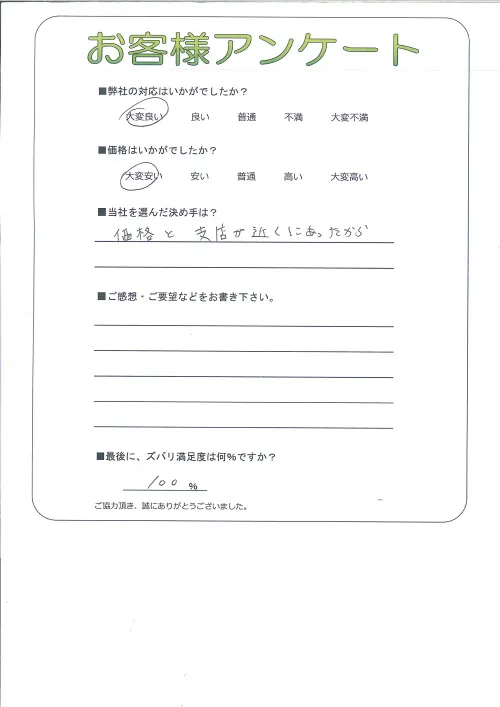 お客様アンケート
■弊社の対応はいかがでしたか？
大変良い 良い 普通 不満 大変不満
■価格はいかがでしたか？
大変安い 安い 普通 高い 大変高い
■当社を選んだ決め手は？
価格と 支店が近くにあったから
■ご感想・ご要望などをお書き下さい。
■最後に、ズバリ満足度は何%ですか？
100 %
ご協力頂き、誠にありがとうございました。